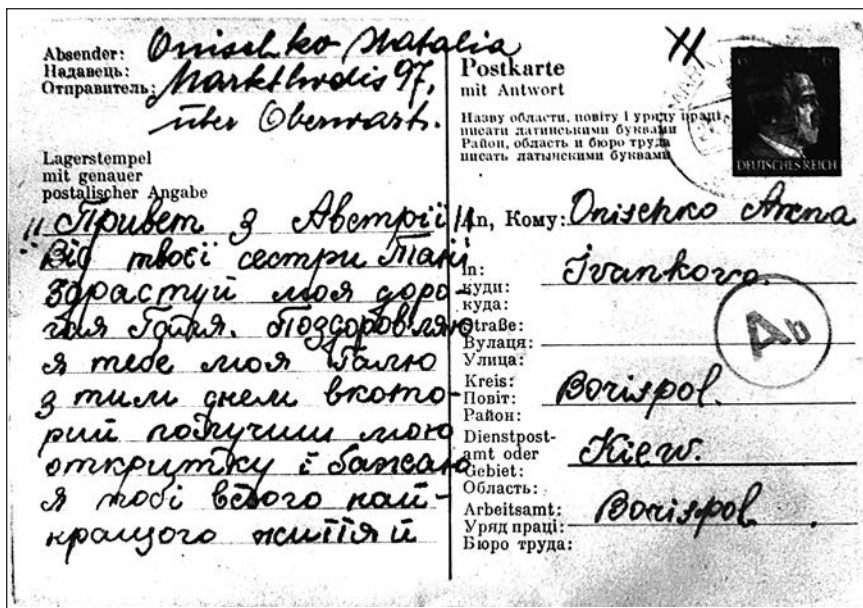 Absender: Onischko Natalia
Надавець:
Отправитель: Markthodis 97,
über Oberwart.
Lagerstempel
mit genauer
postalischer Angabe
!! Привет з Австрії!!
Від твоєї сестри Тані
Здраствуй моя доро-
гая Галя. Поздоровляю
я тебе моя Галю
з тим днем вкото-
рий получиш мою
открутку і бажаю
я тобі всього най-
кращого життя й
Postkarte
mit Antwort
Назву области, повіту і уряду праці
писати латинськими буквами
Район, область и бюро труда
писать латынскими буквами
DEUTSCHES REICH
An, Кому: Onischko Anna
In: Ivankovo.
куди:
куда:
Straße:
Вулаця:
Улица:
Kreis: Borispol.
Повіт:
Район:
Dienstpost-
amt oder Kiew.
Gebiet:
Область:
Arbeitsamt: Borispol.
Уряд праці:
Бюро труда:
Ab